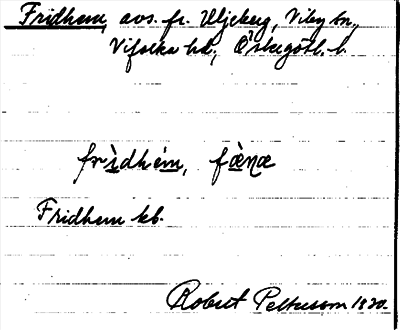 Fridhem, avs. fr. Uljeberg, Viby sn.,
Vifolka hd., Östergötl. l.
frìdhém, fæ̀næ
Fridhem kb.
Robert Pettersson 1930.